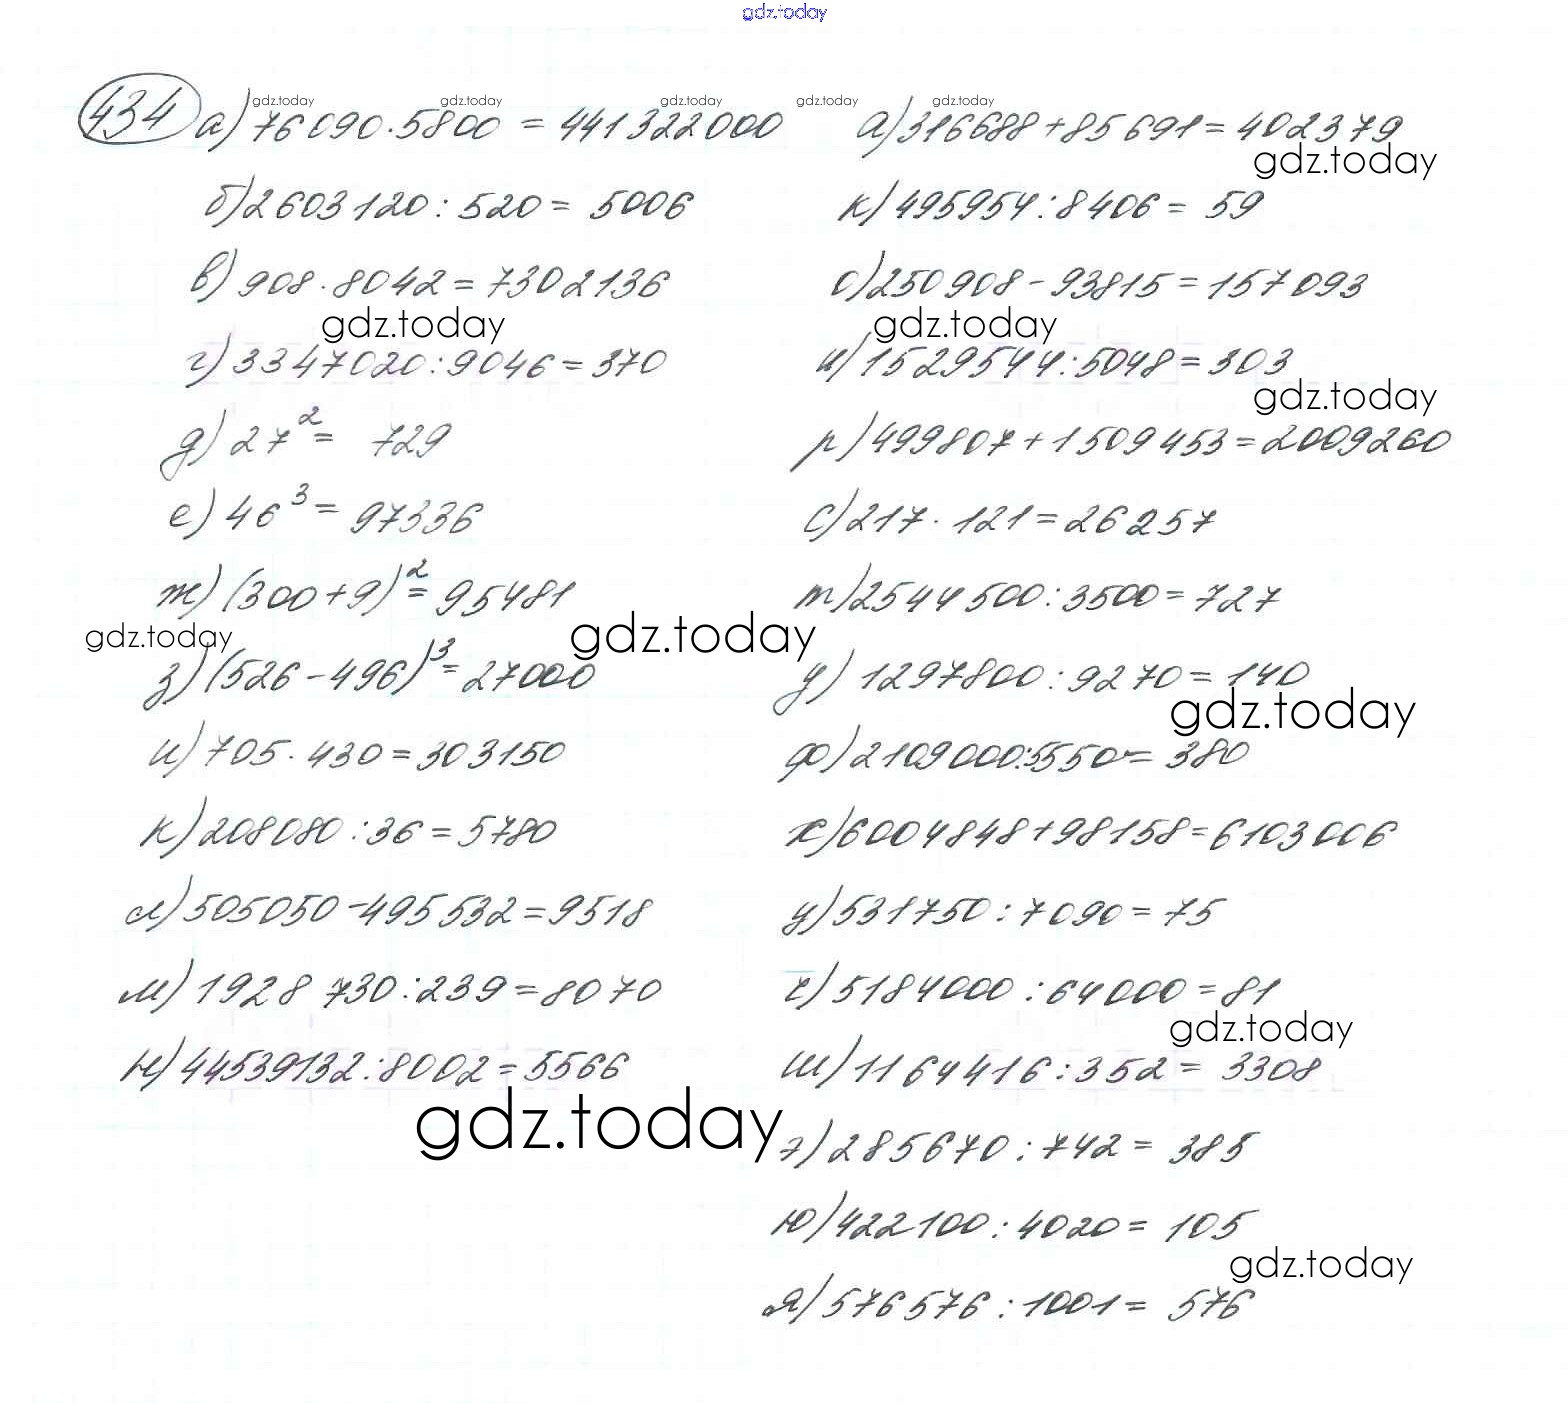 gdz.today
434 а) 76090·5800 = 441322000
б) 2603120:520 = 5006
в) 908·8042 = 7302136
г) 3347020:9046 = 370
д) 27² = 729
е) 46³ = 97336
ж) (300+9)² = 95481
з) (526-496)³ = 27000
и) 705·430 = 303150
к) 208080:36 = 5780
л) 505050-495532 = 9518
м) 1928730:239 = 8070
н) 44539132:8002 = 5566
а) 316688+85691 = 402379
к) 495954:8406 = 59
о) 250908-93815 = 157093
и) 1529544:5048 = 303
р) 499807+1509453 = 2009260
с) 217·121 = 26257
т) 2544500:3500 = 727
у) 1297800:9270 = 140
ф) 2109000:5550 = 380
х) 6004848+98158 = 6103006
ц) 531750:7090 = 75
ч) 5184000:64000 = 81
ш) 1164416:352 = 3308
э) 285670:742 = 385
ю) 422100:4020 = 105
я) 576576:1001 = 576
gdz.today gdz.today gdz.today gdz.today gdz.today
gdz.today
gdz.today gdz.today
gdz.today
gdz.today gdz.today
gdz.today
gdz.today
gdz.today
gdz.today